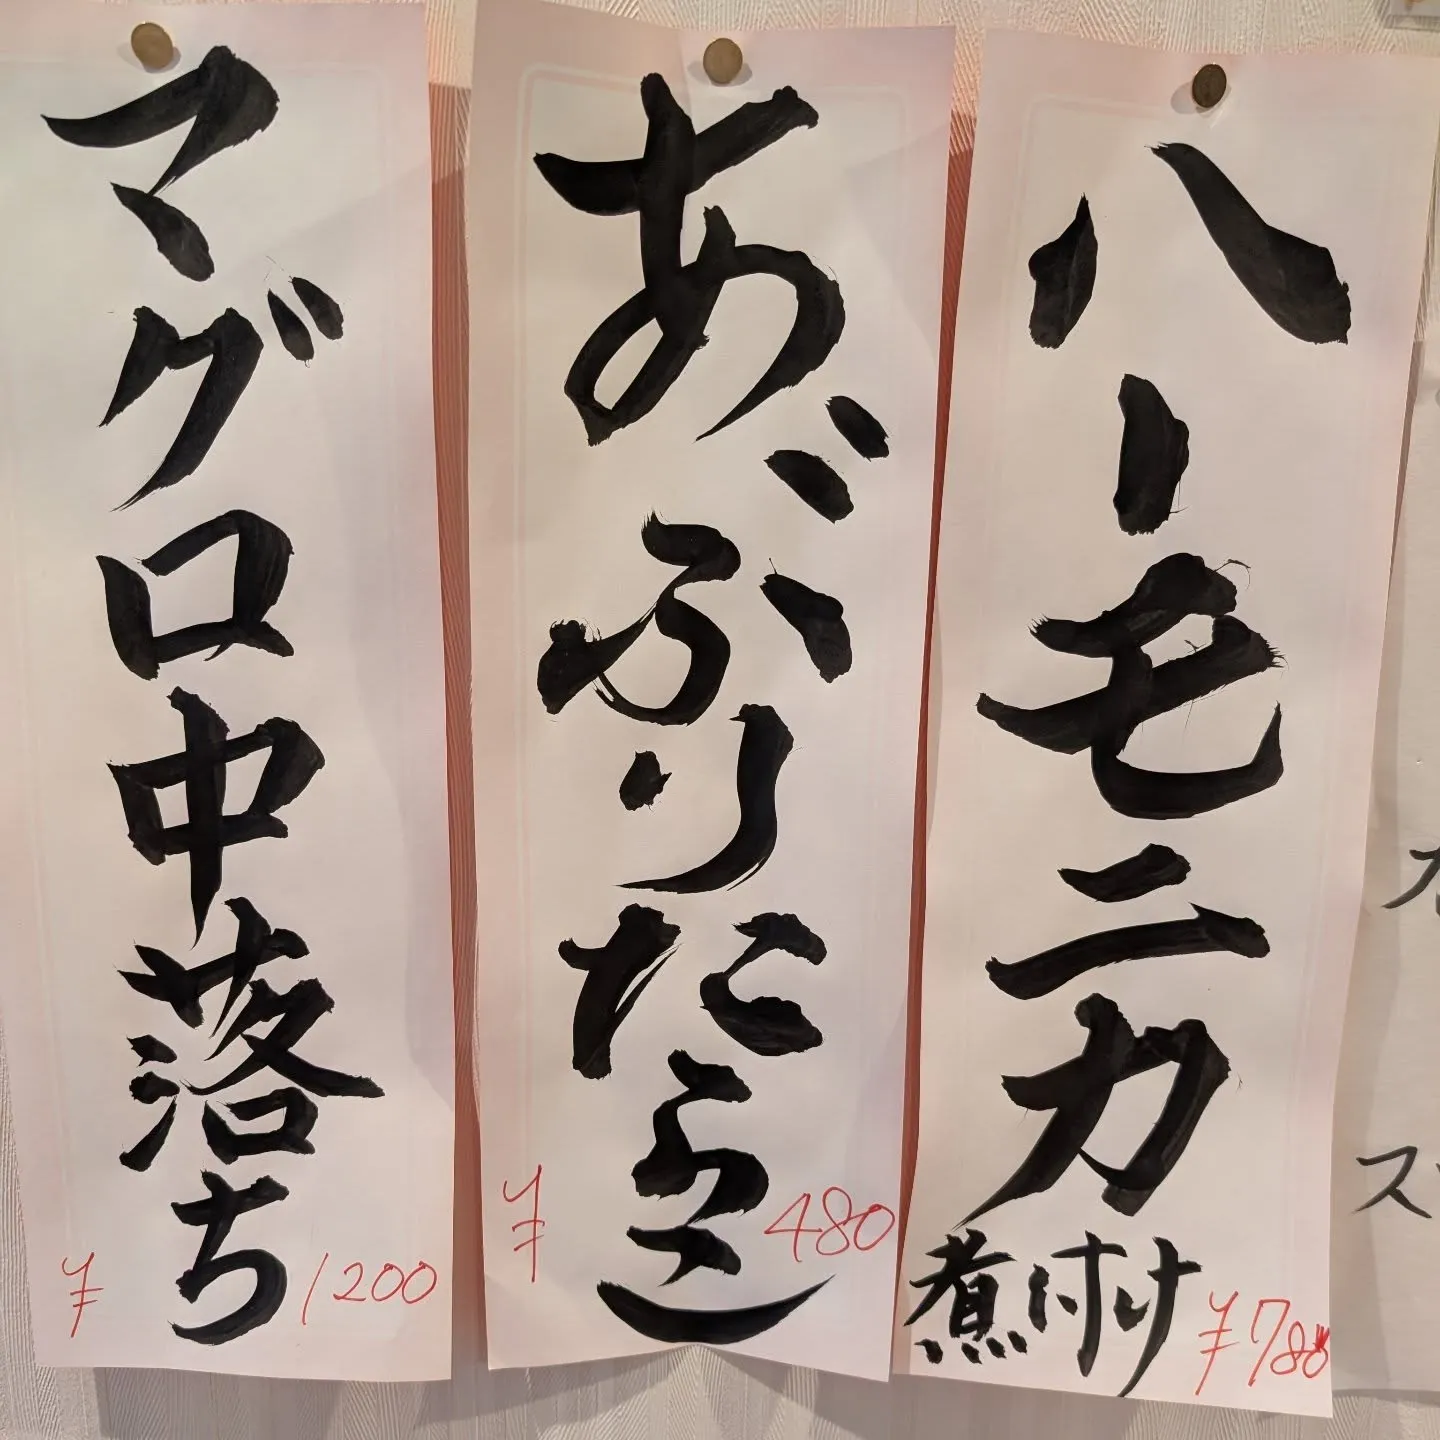 ハーモニカ
煮付け
¥780
あぶりたらこ
¥480
マグロ中落ち
¥1200